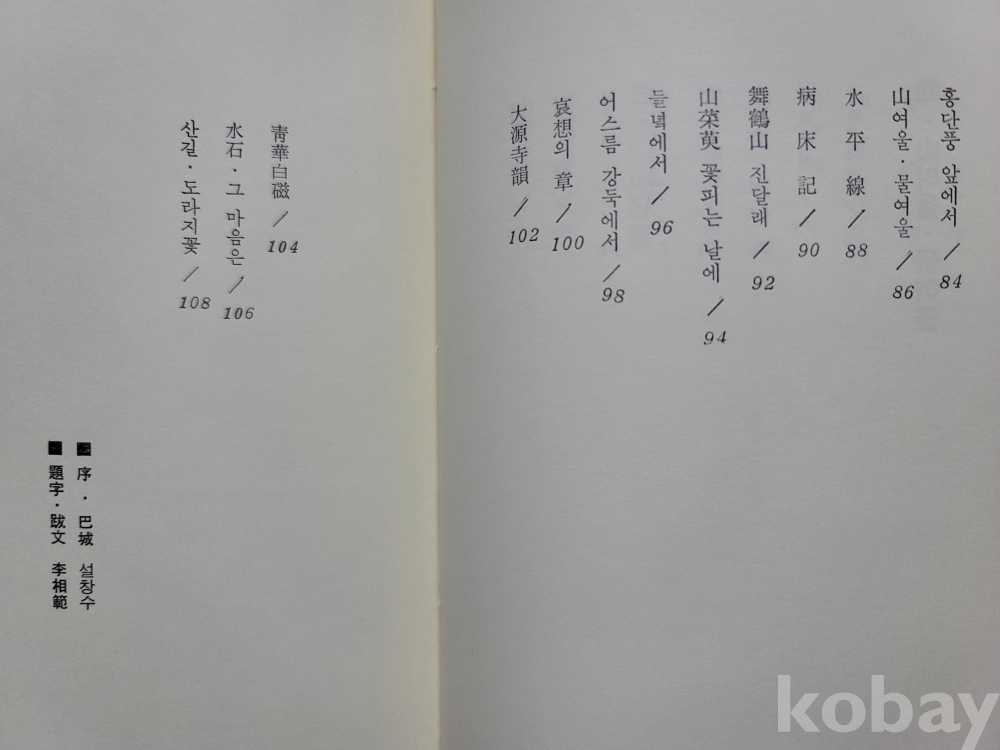 홍단풍 앞에서 / 84
山여울·물여울 / 86
水平線 / 88
病床記 / 90
舞鶴山 진달래 / 92
山茱萸 꽃피는 날에 / 94
들녘에서 / 96
어스름 강둑에서 / 98
哀想의 章 / 100
大源寺韻 / 102
靑華白磁 / 104
水石·그 마음은 / 106
산길·도라지꽃 / 108
■ 序 · 巴城 설창수
■ 題字·跋文 李相範
kobay